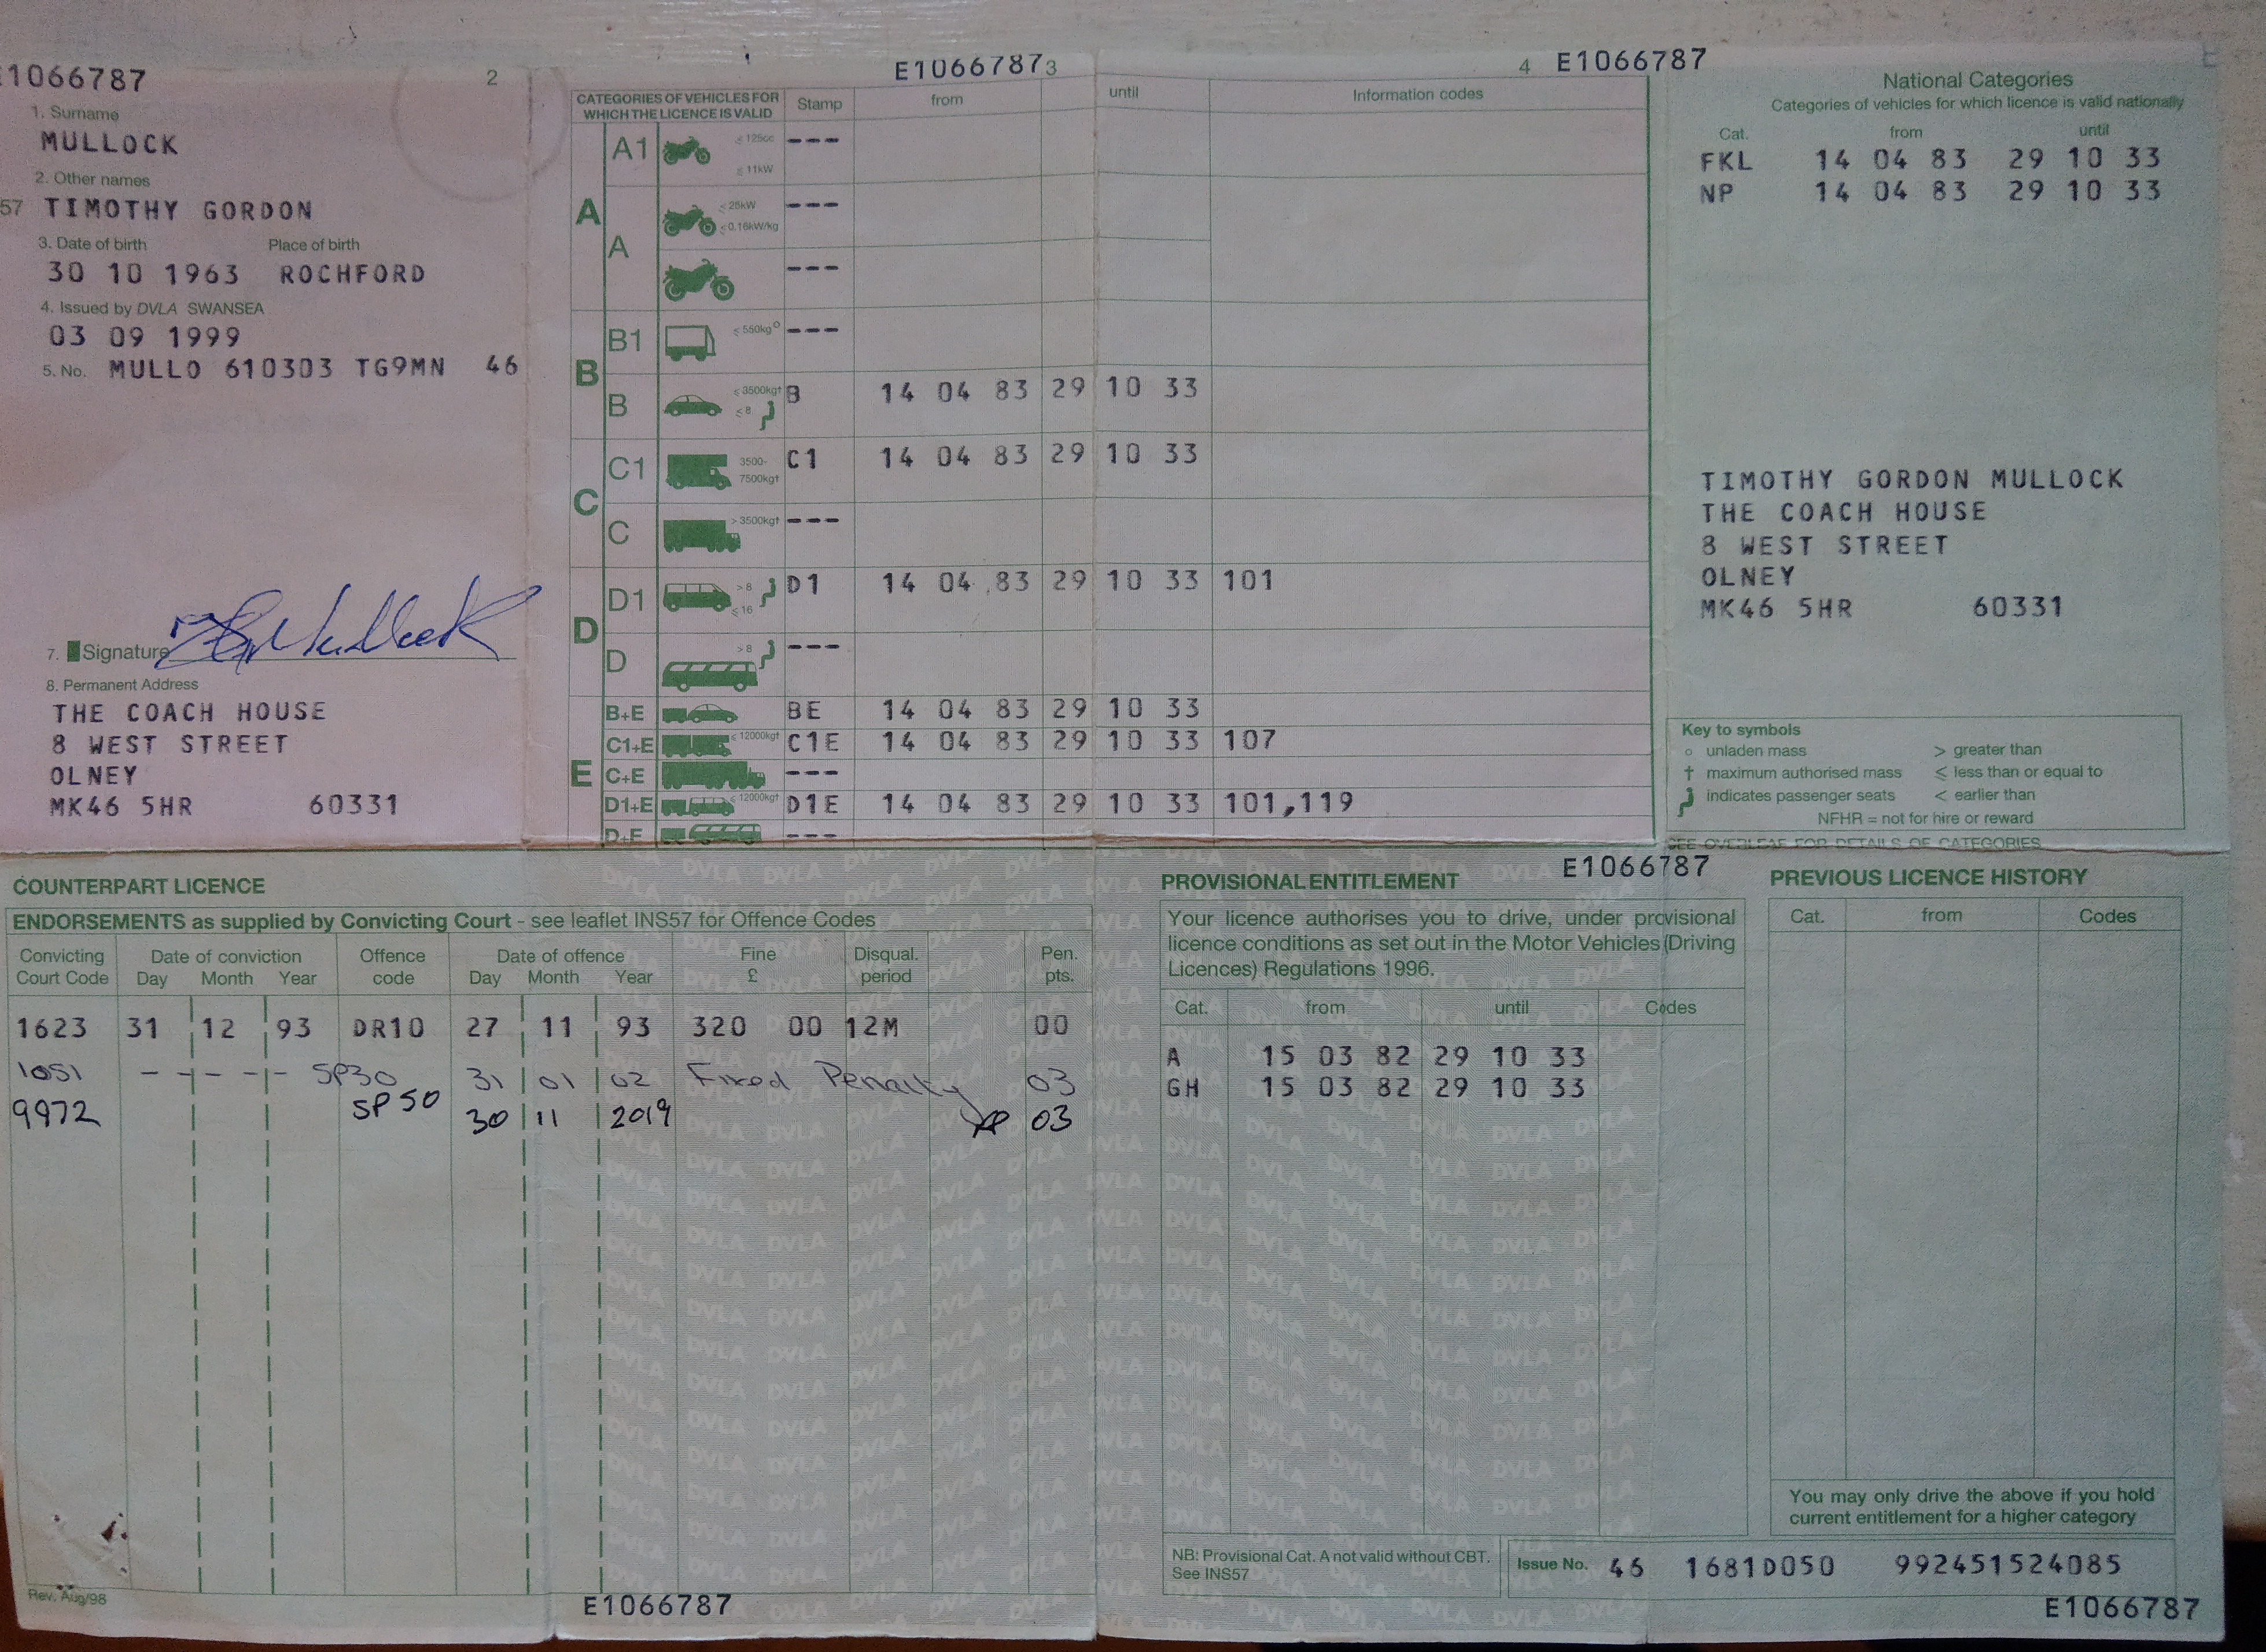 E1066787
2
1. Surname
MULLOCK
2. Other names
57 TIMOTHY GORDON
3. Date of birth Place of birth
30 10 1963 ROCHFORD
4. Issued by DVLA SWANSEA
03 09 1999
5. No. MULLO 610303 TG9MN 46
7. Signature
8. Permanent Address
THE COACH HOUSE
8 WEST STREET
OLNEY
MK46 5HR 60331
E1066787 3
CATEGORIES OF VEHICLES FOR WHICH THE LICENCE IS VALID Stamp from until Information codes
A
A1 ≤ 125cc ≤ 11kW ---
A ≤ 25kW ≤ 0.16kW/kg ---
---
B
B1 ≤ 550kg° ---
B ≤ 3500kg† ≤ 8 B 14 04 83 29 10 33
C
C1 3500-7500kg† C1 14 04 83 29 10 33
C > 3500kg† ---
D
D1 > 8 ≤ 16 D1 14 04 83 29 10 33 101
D > 8 ---
E
B+E BE 14 04 83 29 10 33
C1+E ≤ 12000kg† C1E 14 04 83 29 10 33 107
C+E ---
D1+E ≤ 12000kg† D1E 14 04 83 29 10 33 101,119
D+E ---
4 E1066787
National Categories
Categories of vehicles for which licence is valid nationally
Cat. from until
FKL 14 04 83 29 10 33
NP 14 04 83 29 10 33
TIMOTHY GORDON MULLOCK
THE COACH HOUSE
8 WEST STREET
OLNEY
MK46 5HR 60331
Key to symbols
° unladen mass > greater than
† maximum authorised mass ≤ less than or equal to
indicates passenger seats < earlier than
NFHR = not for hire or reward
SEE OVERLEAF FOR DETAILS OF CATEGORIES
COUNTERPART LICENCE
ENDORSEMENTS as supplied by Convicting Court - see leaflet INS57 for Offence Codes
Convicting Court Code Date of conviction Day Month Year Offence code Date of offence Day Month Year Fine £ Disqual. period Pen. pts.
1623 31 12 93 DR10 27 11 93 320 00 12M 00
1051 - - - - - SP30 31 01 02 Fixed Penalty 03
9972 SP50 30 11 2019 03
Rev. Aug/98
E1066787
E1066787
PROVISIONAL ENTITLEMENT
Your licence authorises you to drive, under provisional
licence conditions as set out in the Motor Vehicles (Driving
Licences) Regulations 1996.
Cat. from until Codes
A 15 03 82 29 10 33
GH 15 03 82 29 10 33
NB: Provisional Cat. A not valid without CBT.
See INS57
PREVIOUS LICENCE HISTORY
Cat. from Codes
You may only drive the above if you hold
current entitlement for a higher category
Issue No. 46 1681D050 992451524085
E1066787